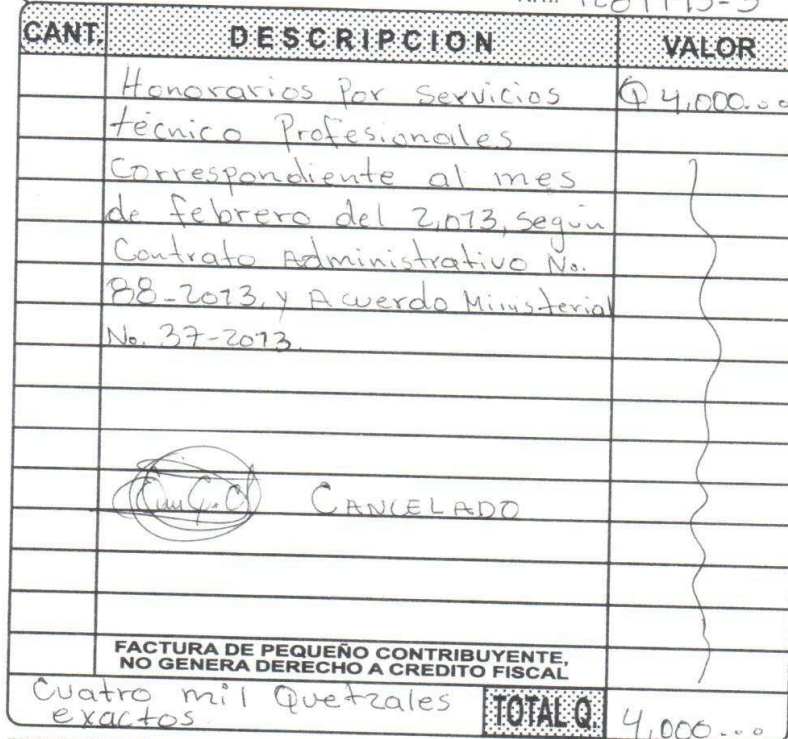 CANT. DESCRIPCION VALOR
Honorarios Por Servicios Q 4,000.00
técnico Profesionales
Correspondiente al mes
de febrero del 2,013, según
Contrato Administrativo No.
88-2013, y Acuerdo Ministerial
No. 37-2013.
CANCELADO
FACTURA DE PEQUEÑO CONTRIBUYENTE,
NO GENERA DERECHO A CREDITO FISCAL
Cuatro mil Quetzales
exactos. TOTAL Q. 4,000.00